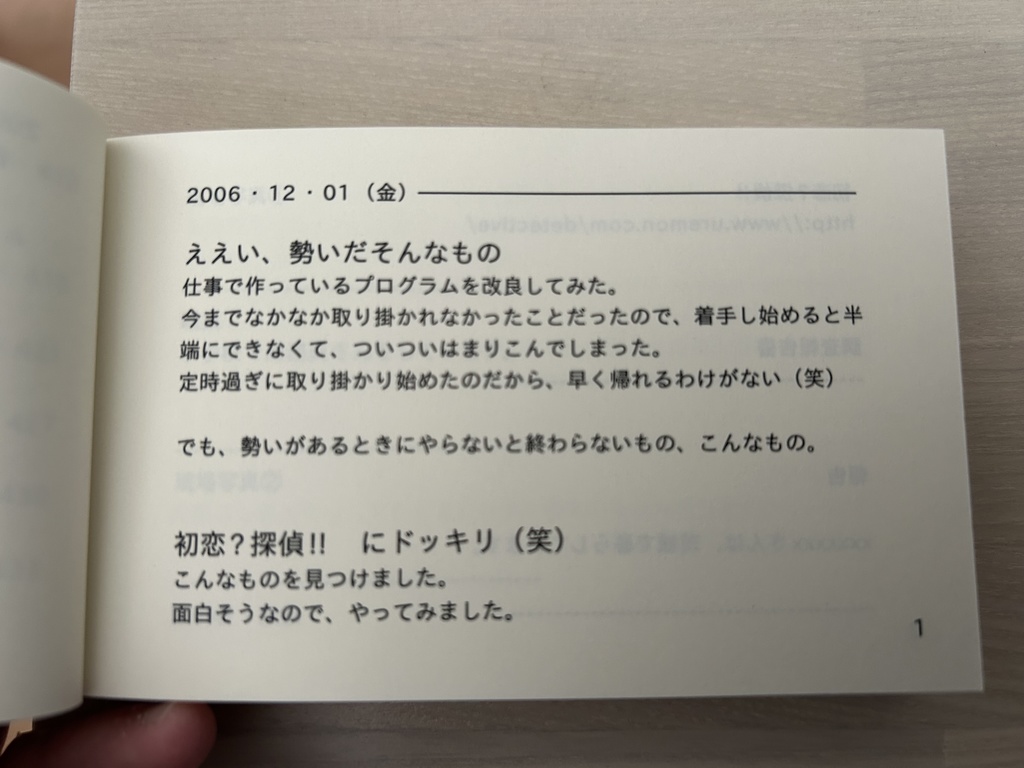 2006・12・01（金）
ええい、勢いだそんなもの
仕事で作っているプログラムを改良してみた。
今までなかなか取り掛かれなかったことだったので、着手し始めると半
端にできなくて、ついついはまりこんでしまった。
定時過ぎに取り掛かり始めたのだから、早く帰れるわけがない（笑）
でも、勢いがあるときにやらないと終わらないもの、こんなもの。
初恋？探偵!!　にドッキリ（笑）
こんなものを見つけました。
面白そうなので、やってみました。
1